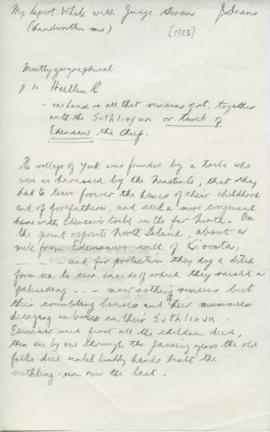 My Report White with Judge Swan
(handwritten ms) [1883]
Mostly geographical
p 10
one hand is all that remains got, together
with the Suthlingun or tomb of
Edensaw the chief.
The village of Yark was founded by a tribe who
were so harassed by the that they
had to leave forever the homes of their childhood
and of forefathers, and seek a more congenial
home with Edensaw's tribe in the far North. On
the point opposite North Island, about a
mile from Edensaws, call of Kiovata,
and for protection they dug a ditch
form sea to sea, inside of which they raised a
palisading - - - nay nothing remains but
their crumbling houses and their mummies
decaying in boxes on their Suthlinun.
Edensaw said first all the children died,
then one by one through the passing years the old
folks died until kindly hands built the
suthling-nun over the last.